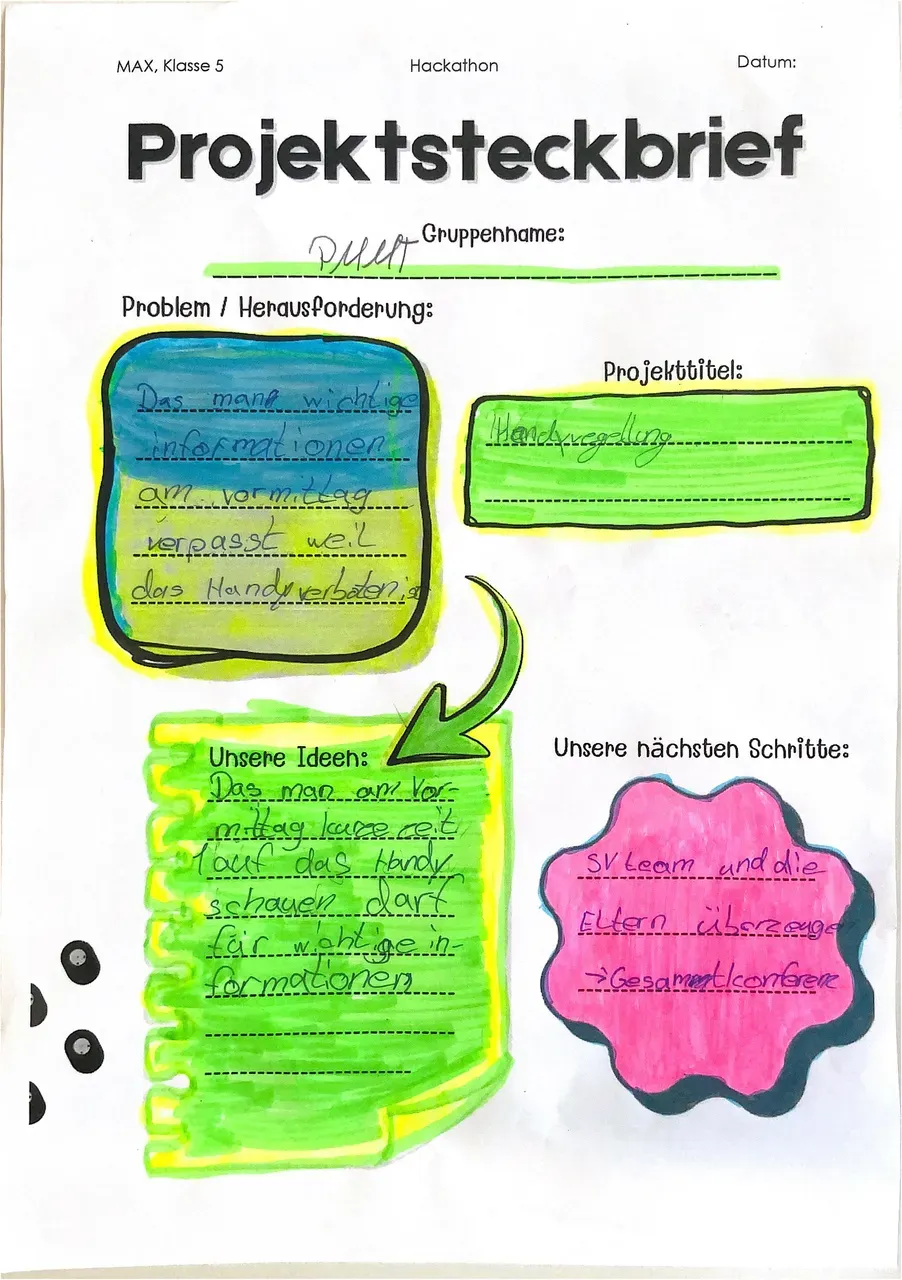 MAX, Klasse 5
Hackathon
Datum:
Projektsteckbrief
Gruppenname:
Problem / Herausforderung:
Das man wichtige
informationen
am vormittag
verpasst weil
das Handy verboten ist
Projekttitel:
Handyregellung
Unsere Ideen:
Das man am Vor-
mittag kurze zeit
1 auf das Handy
schauen darf
für wichtige in-
formationen
Unsere nächsten Schritte:
SV team und die
Eltern überzeugen
→ Gesammtkonferenz